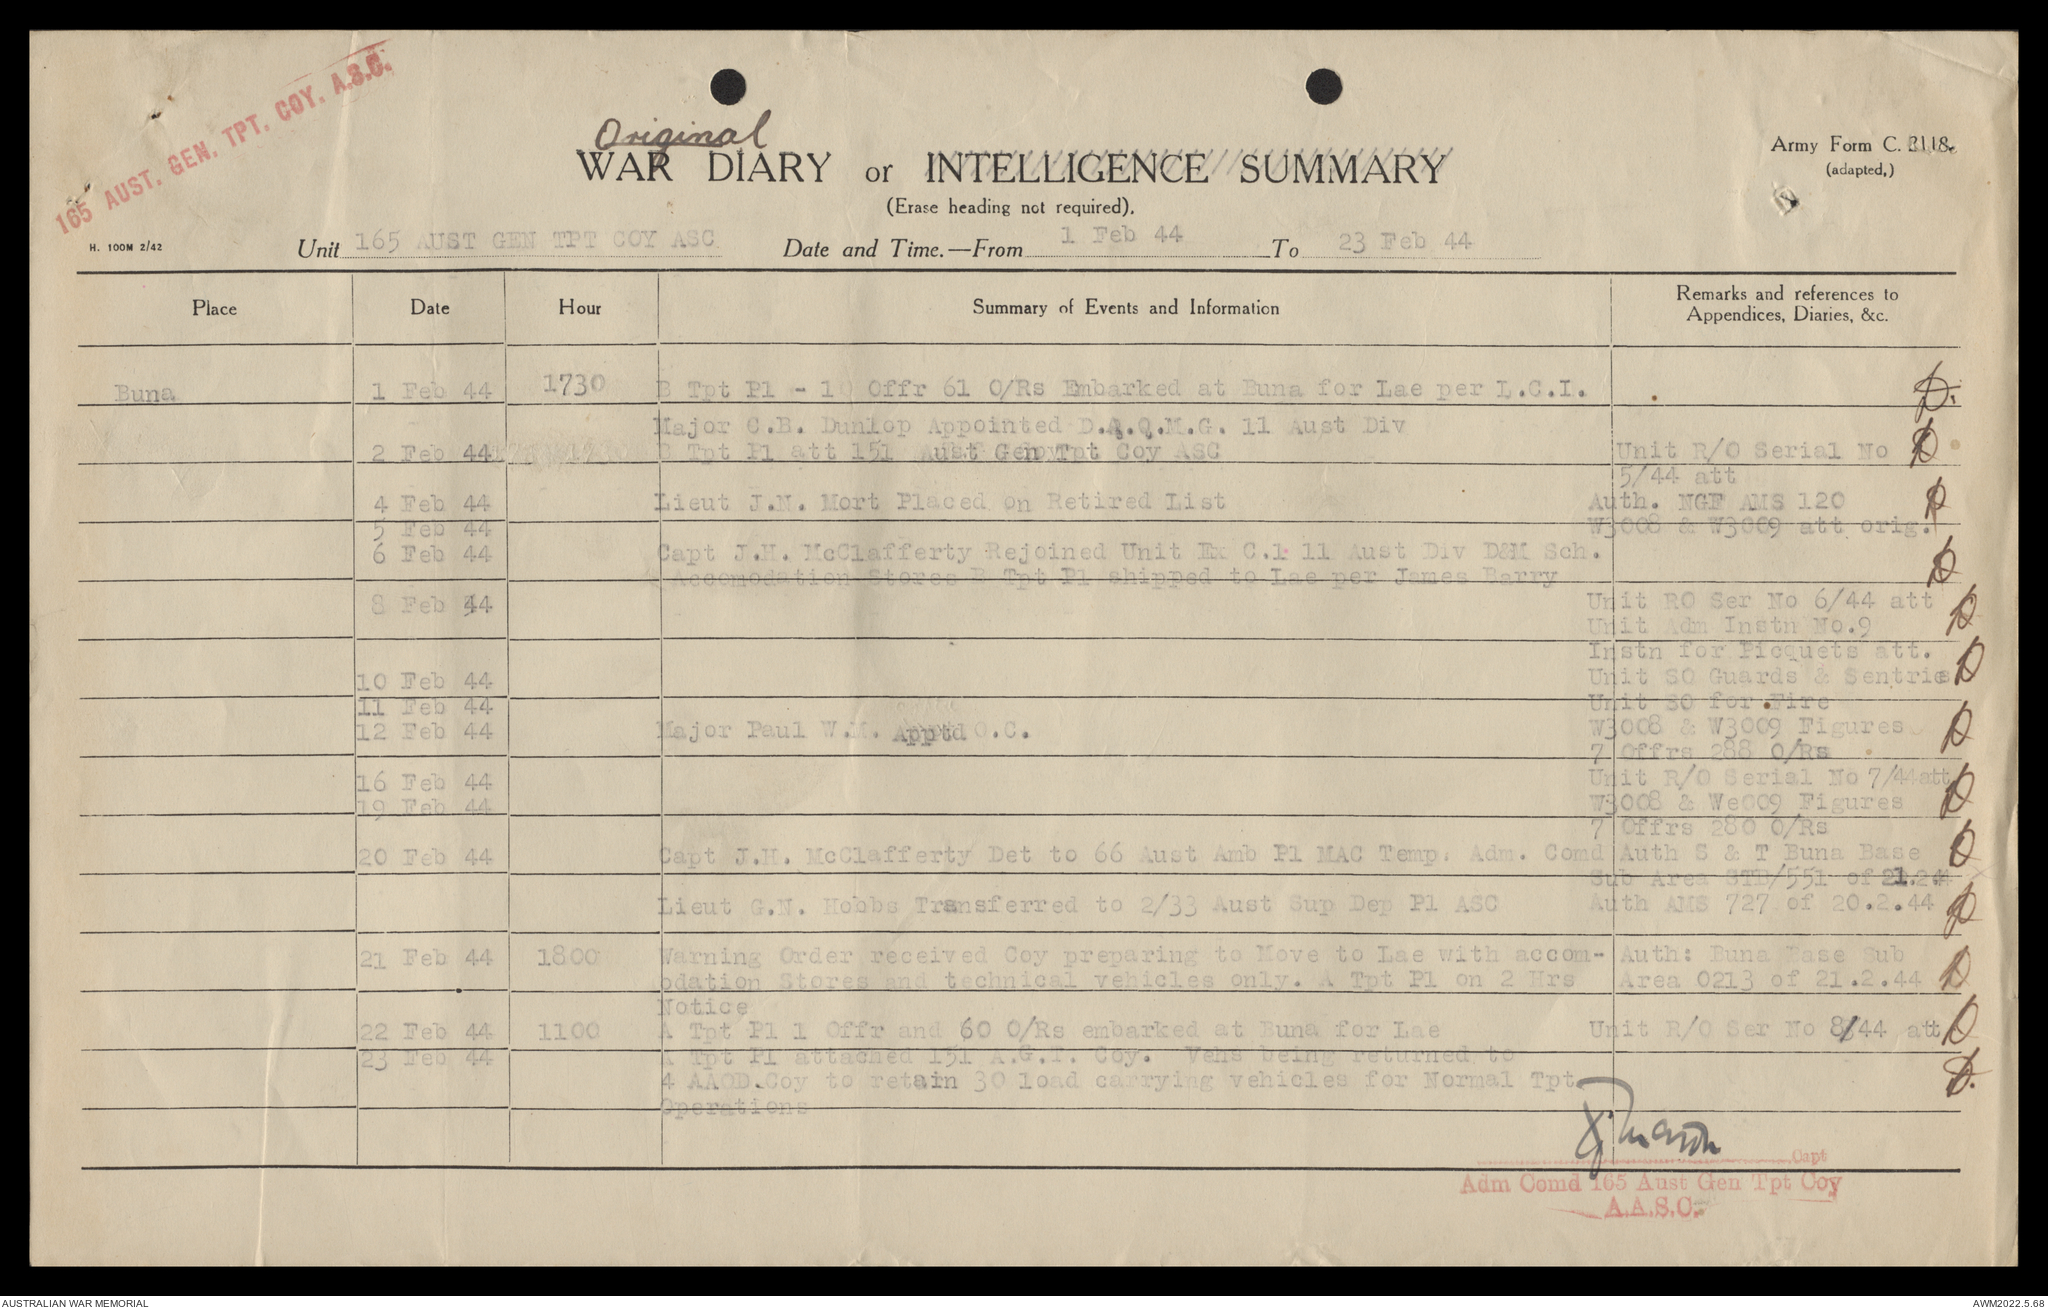 165 AUST. GEN. TPT. COY. A.S.C.
Original
WAR DIARY or INTELLIGENCE SUMMARY
(Erase heading not required).
Army Form C. 2118.
(adapted.)
H. 100M 2/42
Unit 165 AUST GEN TPT COY ASC Date and Time.—From 1 Feb 44 To 23 Feb 44
Place Date Hour Summary of Events and Information Remarks and references to
Appendices, Diaries, &c.
Buna 1 Feb 44 1730 B Tpt Pl - 1 Offr 61 O/Rs Embarked at Buna for Lae per L.C.I.
Major C.B. Dunlop Appointed D.A.Q.M.G. 11 Aust Div
2 Feb 44 B Tpt Pl att 151 Aust Gen Tpt Coy ASC Unit R/O Serial No
5/44 att
4 Feb 44 Lieut J.N. Mort Placed on Retired List Auth. NGF AMS 120
5 Feb 44 W3008 & W3009 att orig.
6 Feb 44 Capt J.H. McClafferty Rejoined Unit Ex C.1 11 Aust Div D&M Sch.
Accomodation Stores B Tpt Pl shipped to Lae per James Barry
8 Feb 44 Unit RO Ser No 6/44 att
Unit Adm Instn No.9
Instn for Picquets att.
10 Feb 44 Unit SO Guards & Sentries
11 Feb 44 Unit SO for Fire
12 Feb 44 Major Paul W.M. Apptd O.C. W3008 & W3009 Figures
7 Offrs 288 O/Rs
16 Feb 44 Unit R/O Serial No 7/44 att
19 Feb 44 W3008 & We009 Figures
7 Offrs 280 O/Rs
20 Feb 44 Capt J.H. McClafferty Det to 66 Aust Amb Pl MAC Temp. Adm. Comd Auth S & T Buna Base
Sub Area STB/551 of 21.2.44
Lieut G.N. Hobbs Transferred to 2/33 Aust Sup Dep Pl ASC Auth AMS 727 of 20.2.44
21 Feb 44 1800 Warning Order received Coy preparing to Move to Lae with accom- Auth: Buna Base Sub
odation Stores and technical vehicles only. A Tpt Pl on 2 Hrs Area 0213 of 21.2.44
Notice
22 Feb 44 1100 A Tpt Pl 1 Offr and 60 O/Rs embarked at Buna for Lae Unit R/O Ser No 8/44 att
23 Feb 44 A Tpt Pl attached 151 A.G.T. Coy. Vehs being returned to
4 AAOD. Coy to retain 30 load carrying vehicles for Normal Tpt
Operations
Capt
Adm Comd 165 Aust Gen Tpt Coy
A.A.S.C.
AUSTRALIAN WAR MEMORIAL
AWM2022.5.68